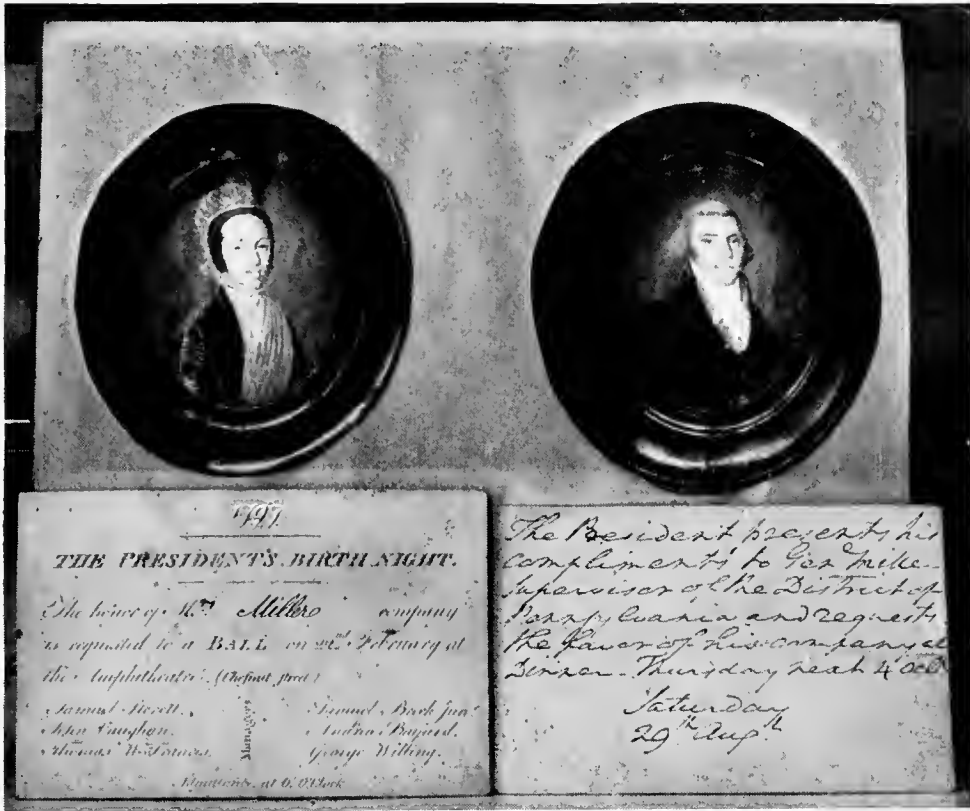 1797
THE PRESIDENT'S BIRTH NIGHT.
The honor of Mrs Miller company
is requested to a BALL on 22nd February at
the Amphitheatre (Chesnut street)
Samuel
John Vaughan.
Thomas W. Francis.
Managers
Samuel Breck Junr
Andrew Bayard.
George Willing.
Admittance at 6 O'Clock
The President presents his
compliments to Gen Mille
Supervisor of the District of
Pennsylvania and requests
the favor of his company at
Dinner Thursday next 4 oclk
Saturday
29th Augst